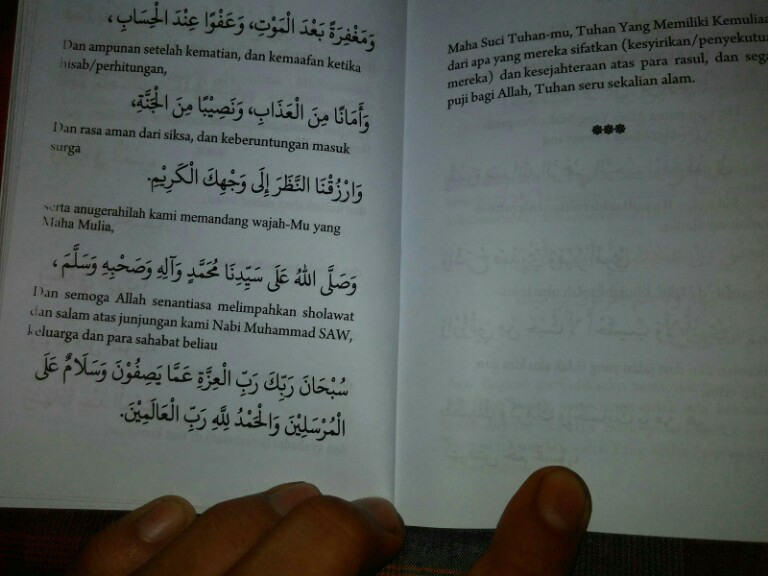 وَمَغْفِرَةً بَعْدَ الْمَوْتِ، وَعَفْوًا عِنْدَ الْحِسَابِ،
Dan ampunan setelah kematian, dan kemaafan ketika
hisab/perhitungan,
وَأَمَانًا مِنَ الْعَذَابِ، وَنَصِيْبًا مِنَ الْجَنَّةِ،
Dan rasa aman dari siksa, dan keberuntungan masuk
surga
وَارْزُقْنَا النَّظَرَ إِلَى وَجْهِكَ الْكَرِيْمِ.
serta anugerahilah kami memandang wajah-Mu yang
Maha Mulia,
وَصَلَّى اللهُ عَلَى سَيِّدِنَا مُحَمَّدٍ وَآلِهِ وَصَحْبِهِ وَسَلَّمَ،
Dan semoga Allah senantiasa melimpahkan sholawat
dan salam atas junjungan kami Nabi Muhammad SAW,
keluarga dan para sahabat beliau
سُبْحَانَ رَبِّكَ رَبِّ الْعِزَّةِ عَمَّا يَصِفُوْنَ وَسَلَامٌ عَلَى
الْمُرْسَلِيْنَ وَالْحَمْدُ لِلَّهِ رَبِّ الْعَالَمِيْنَ.
Maha Suci Tuhan-mu, Tuhan Yang Memiliki Kemuliaa
dari apa yang mereka sifatkan (kesyirikan/penyekutua
mereka) dan kesejahteraan atas para rasul, dan sega
puji bagi Allah, Tuhan seru sekalian alam.